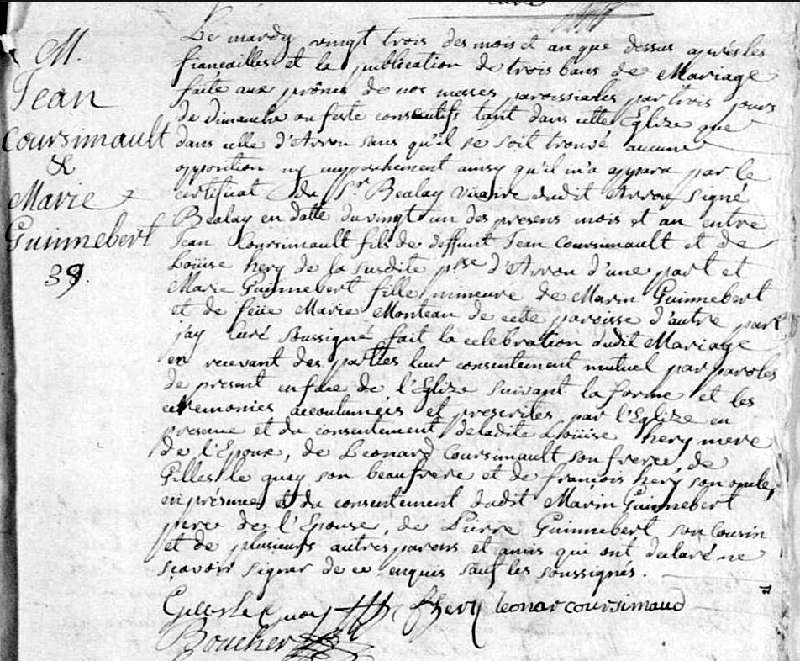 M.
Jean
Coursimault
&
Marie
Guinnebert
39.
Le mardy vingt trois des mois et an que dessus apres les
fiancailles et la publication de trois bans de Mariage
faite aux prônes de nos messes paroissiales par trois jours
de dimanche ou feste consecutifs tant dans cette Eglize que
dans celle d'Arrou sans qu'il se soit trouvé aucune
opposition ny empeschement ainsy qu'il m'a apparu par le
certificat du Sr Bealay vicaire dudit Arrou signé
Bealay en datte du vingt un des presens mois et an entre
Jean Coursimault fils de deffunt Jean Coursimault et de
Loüise hery de la susdite psse d'Arrou d'une part et
Marie Guinnebert fille mineure de Marin Guinnebert
et de feüe Marie Monteau de cette paroisse d'autre part
j'ay Curé soussigné fait la celebration dudit Mariage
en recevant des parties leur consentement mutuel par paroles
de present en face de l'Eglize suivant la forme et les
ceremonies accoutumées et prescrites par l'Eglize en
presence et du consentement de ladite Loüise hery mere
de l'Epoux, de Leonard Coursimault son frere, de
Gilles le quay son beaufrere et de francois hery son oncle,
en presence et du consentement dudit Marin Guinnebert
pere de l'Epouse, de Pierre Guinnebert son Cousin
et de plusieurs autres parens et amis qui ont declaré ne
scavoir signer de ce enquis sauf les soussignés.
Gilles Le Quay f hery leonar coursimaud
Boucher